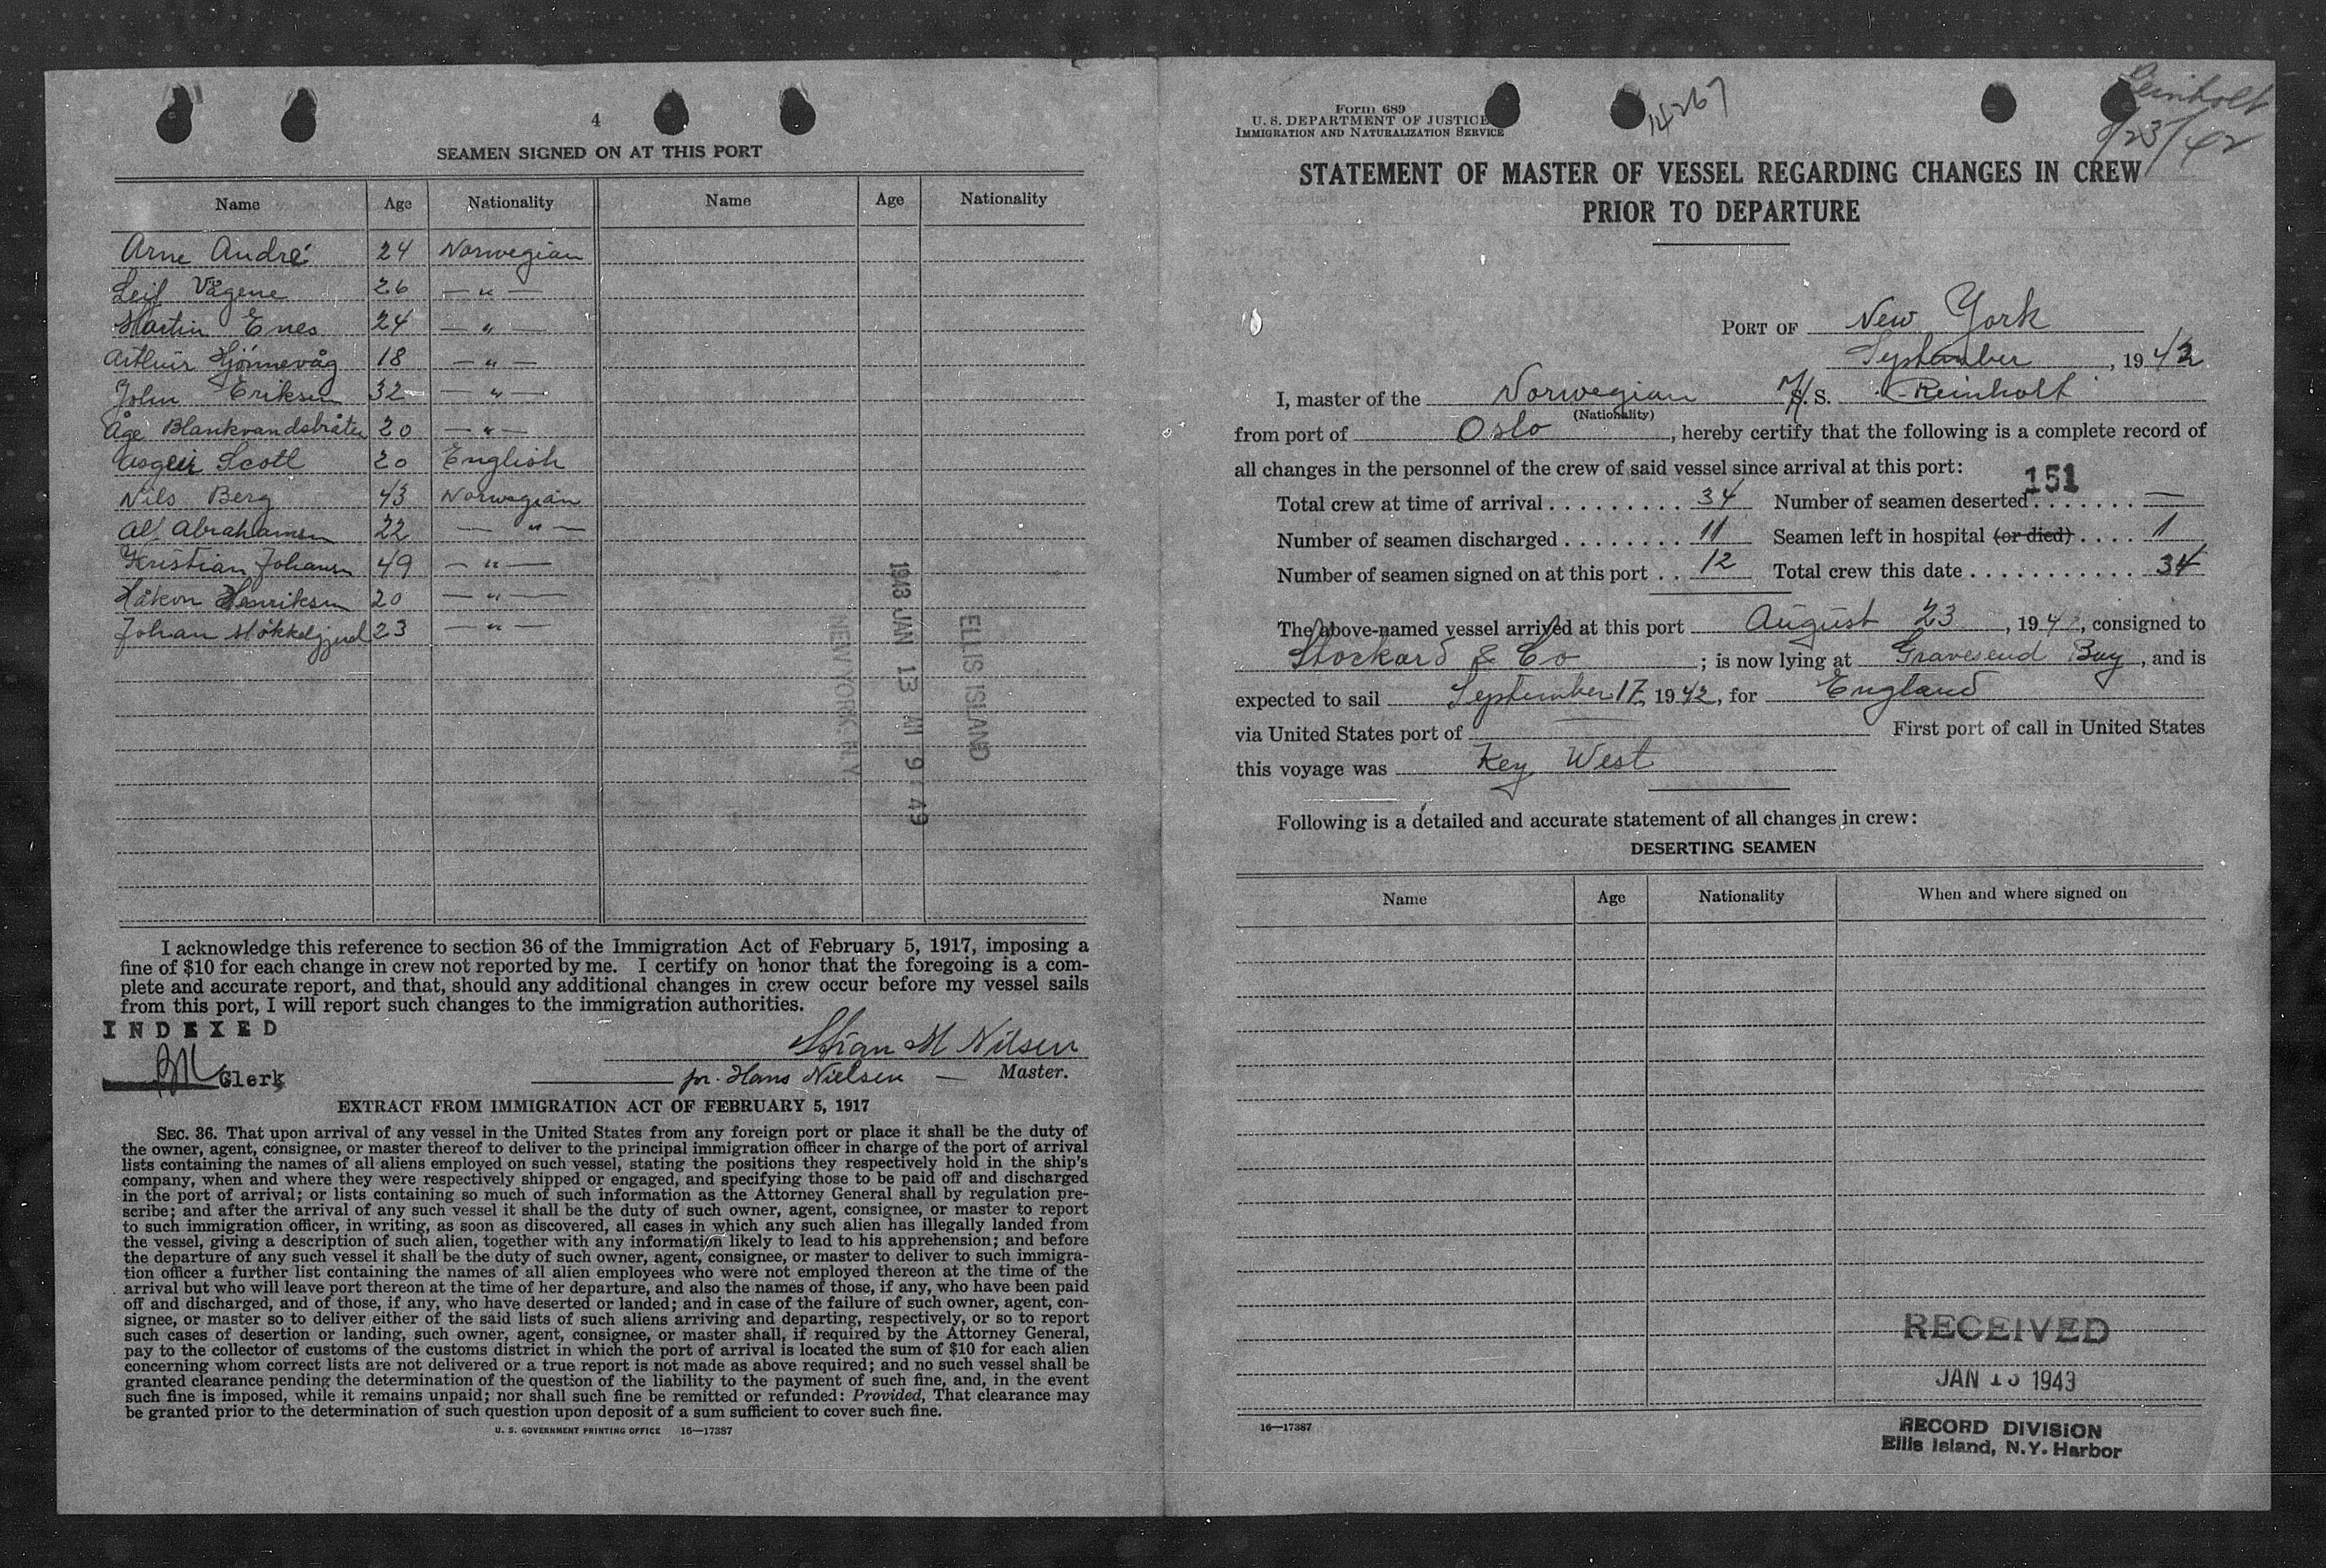 4
SEAMEN SIGNED ON AT THIS PORT
Name Age Nationality Name Age Nationality
Arne André 24 Norwegian
Leif Vågene 26 — " —
Martin Enes 24 — " —
Arthur Hjönnevåg 18 — " —
John Eriksen 32 — " —
Åge Blankvandsbråten 20 — " —
Asgeir Scott 20 English
Nils Berg 43 Norwegian
Alf Abrahamsen 22 — " —
Kristian Johansen 49 — " —
Håkon Henriksen 20 — " —
Johan 23 — " —
ELLIS ISLAND
1943 JAN 13 AM 9 49
NEW YORK, N.Y.
I acknowledge this reference to section 36 of the Immigration Act of February 5, 1917, imposing a
fine of $10 for each change in crew not reported by me. I certify on honor that the foregoing is a com-
plete and accurate report, and that, should any additional changes in crew occur before my vessel sails
from this port, I will report such changes to the immigration authorities.
INDEXED
Clerk
Stian M Nilsen
pr. Hans Nielsen — Master.
EXTRACT FROM IMMIGRATION ACT OF FEBRUARY 5, 1917
SEC. 36. That upon arrival of any vessel in the United States from any foreign port or place it shall be the duty of
the owner, agent, consignee, or master thereof to deliver to the principal immigration officer in charge of the port of arrival
lists containing the names of all aliens employed on such vessel, stating the positions they respectively hold in the ship's
company, when and where they were respectively shipped or engaged, and specifying those to be paid off and discharged
in the port of arrival; or lists containing so much of such information as the Attorney General shall by regulation pre-
scribe; and after the arrival of any such vessel it shall be the duty of such owner, agent, consignee, or master to report
to such immigration officer, in writing, as soon as discovered, all cases in which any such alien has illegally landed from
the vessel, giving a description of such alien, together with any information likely to lead to his apprehension; and before
the departure of any such vessel it shall be the duty of such owner, agent, consignee, or master to deliver to such immigra-
tion officer a further list containing the names of all alien employees who were not employed thereon at the time of the
arrival but who will leave port thereon at the time of her departure, and also the names of those, if any, who have been paid
off and discharged, and of those, if any, who have deserted or landed; and in case of the failure of such owner, agent, con-
signee, or master so to deliver either of the said lists of such aliens arriving and departing, respectively, or so to report
such cases of desertion or landing, such owner, agent, consignee, or master shall, if required by the Attorney General,
pay to the collector of customs of the customs district in which the port of arrival is located the sum of $10 for each alien
concerning whom correct lists are not delivered or a true report is not made as above required; and no such vessel shall be
granted clearance pending the determination of the question of the liability to the payment of such fine, and, in the event
such fine is imposed, while it remains unpaid; nor shall such fine be remitted or refunded: Provided, That clearance may
be granted prior to the determination of such question upon deposit of a sum sufficient to cover such fine.
U. S. GOVERNMENT PRINTING OFFICE 16—17387
Form 689
U. S. DEPARTMENT OF JUSTICE
IMMIGRATION AND NATURALIZATION SERVICE
14267
Reinholt
8/23/42
STATEMENT OF MASTER OF VESSEL REGARDING CHANGES IN CREW
PRIOR TO DEPARTURE
PORT OF New York
September, 1942
I, master of the Norwegian M/S. Reinholt
(Nationality)
from port of Oslo, hereby certify that the following is a complete record of
all changes in the personnel of the crew of said vessel since arrival at this port:
151
Total crew at time of arrival . . . . . . . . . 34 Number of seamen deserted . . . . . . . —
Number of seamen discharged . . . . . . . . 11 Seamen left in hospital (or died) . . . . 1
Number of seamen signed on at this port . . 12 Total crew this date . . . . . . . . . . . . 34
The above-named vessel arrived at this port August 23, 194, consigned to
Stockard & Co ; is now lying at Gravesend Bay, and is
expected to sail September 17, 1942, for England
via United States port of — First port of call in United States
this voyage was Key West
Following is a detailed and accurate statement of all changes in crew:
DESERTING SEAMEN
Name Age Nationality When and where signed on
RECEIVED
JAN 13 1943
RECORD DIVISION
Ellis Island, N.Y. Harbor
16—17387